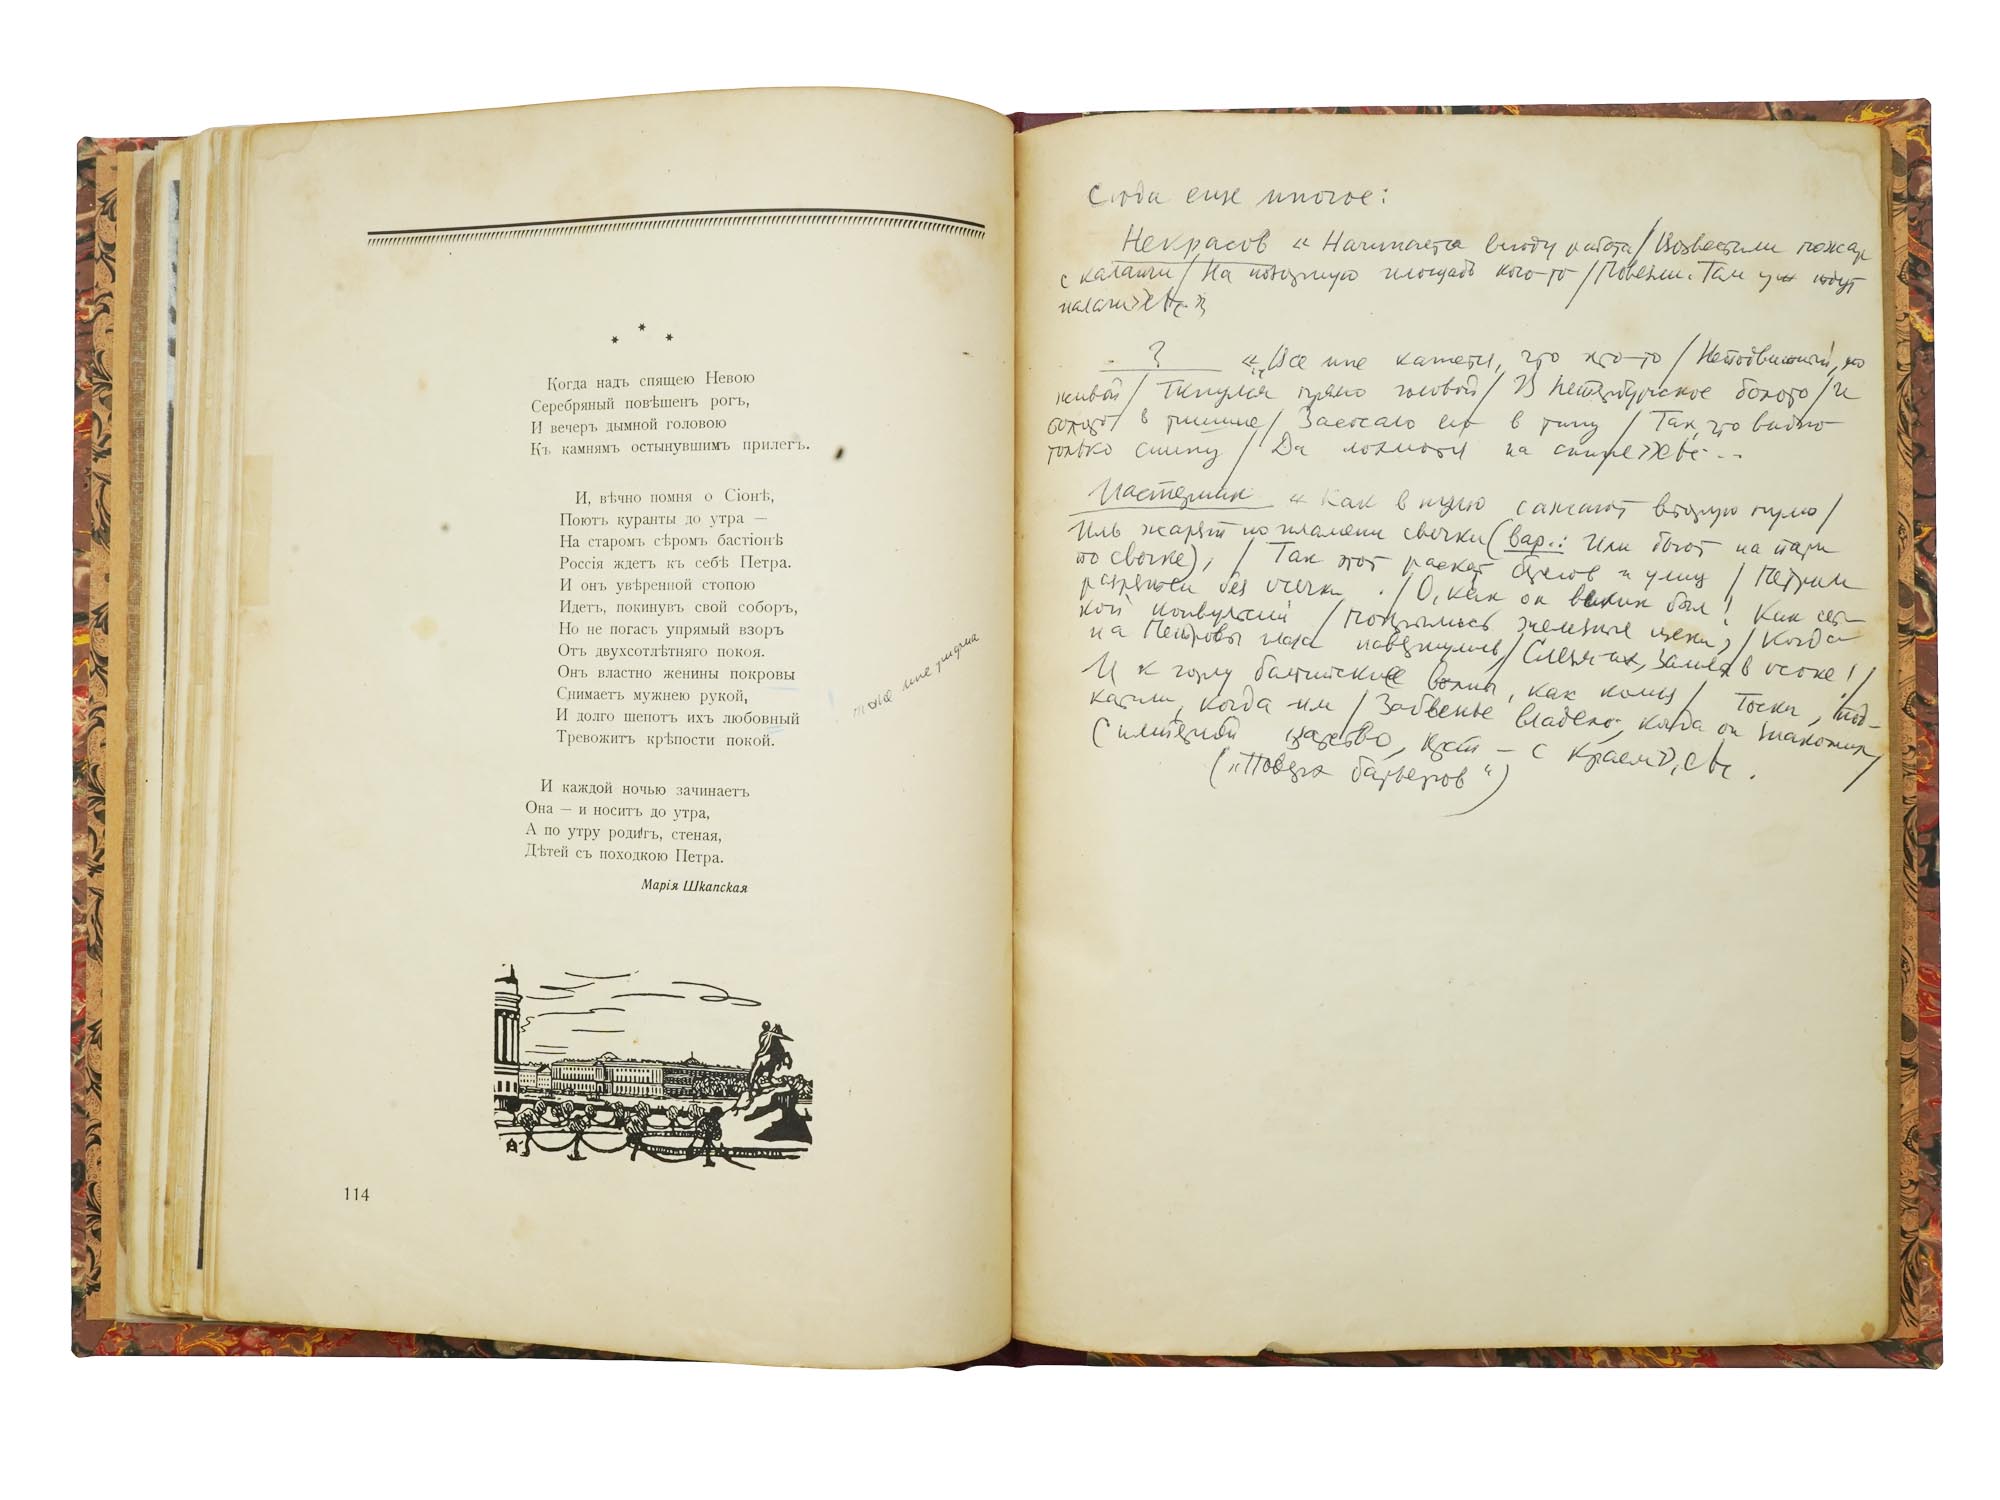 * * *
Когда надъ спящею Невою
Серебряный повѣшенъ рогъ,
И вечеръ дымной головою
Къ камнямъ остынувшимъ прилегъ.
И, вѣчно помня о Сіонѣ,
Поютъ куранты до утра —
На старомъ сѣромъ бастіонѣ
Россія ждетъ къ себѣ Петра.
И онъ увѣренной стопою
Идетъ, покинувъ свой соборъ,
Но не погасъ упрямый взоръ
Отъ двухсотлѣтняго покоя.
Онъ властно женины покровы
Снимаетъ мужнею рукой,
И долго шепотъ ихъ любовный
Тревожитъ крѣпости покой.
И каждой ночью зачинаетъ
Она — и носитъ до утра,
А по утру родитъ, стеная,
Дѣтей съ походкою Петра.
Марія Шкапская
тоже мне рифма
114
Сюда еще многое:
Некрасов « Начинается всюду работа / Возвестили пожар
с каланчи / На позорную площадь кого-то / Повезли. Там уж ждут
палачи»
? « Все мне кажется, что кто-то / Неподвижный, но
живой / Ткнулся прямо головой / В Петербургское болото / и
в тишине / Засосало его в тину / Так, что видно
только спину / Да лохмотья на спине»
Пастернак « Как в пулю сажают вторую пулю /
Иль жарят по пламени свечки (вар.: Или бьют на пари
по свечке), / Так этот раскат берегов и улиц / Петром
разряжен без осечки. / О, как он велик был! Как сет-
кой конвульсий / Покрылись железные щеки, / Когда
на Петровы глаза навернулись / Слезя их, заливы в осоке! /
И к горлу балтийские волны, как комья / Тоски, под-
катили, когда им / Забвенье владело; когда он знакомил /
С империей царство, край — с краем»
(„Поверх барьеров“)